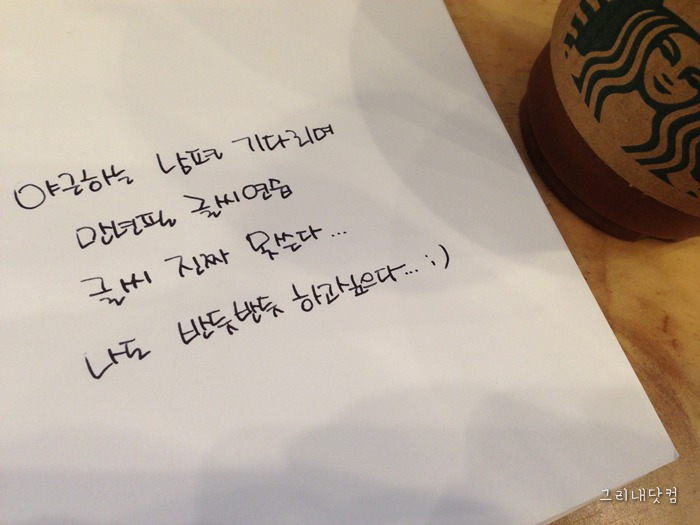 야근하는 남편 기다리며
만년필 글씨연습
글씨 진짜 못쓴다...
나도 반듯반듯 하고싶으다... :)
그리내닷컴